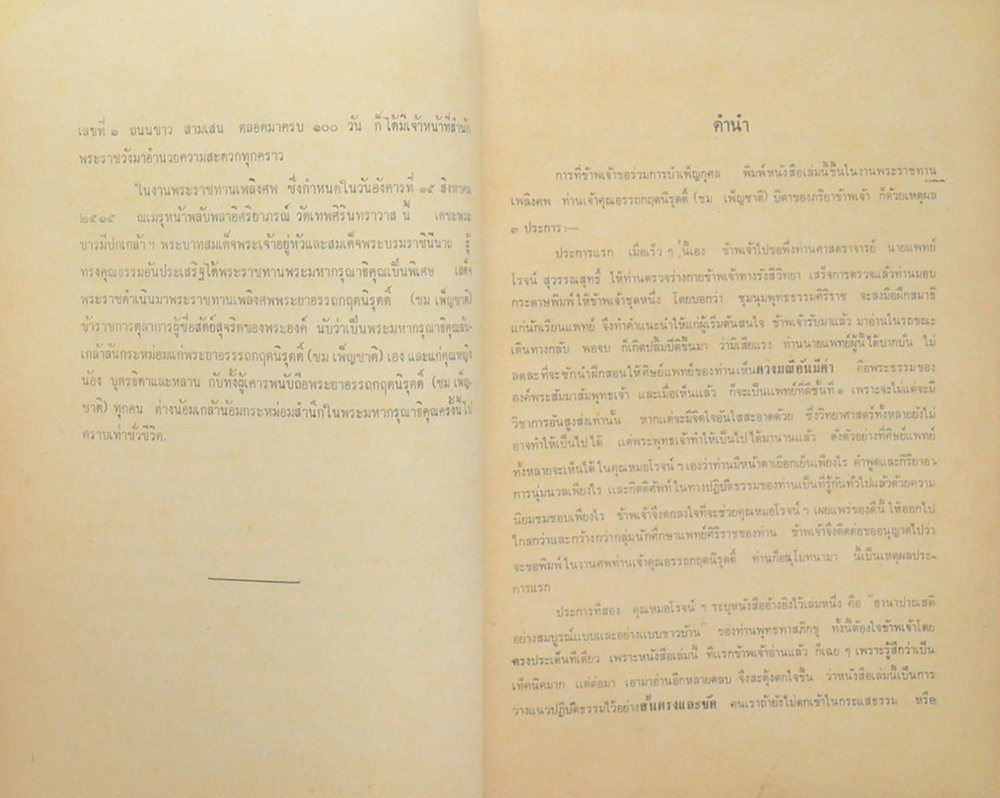 เลขที่ ๑ ถนนขาว สามเสน ตลอดมาครบ ๑๐๐ วัน ก็ได้มีเจ้าหน้าที่สำนัก
พระราชวังมาอำนวยความสะดวกทุกคราว
ในงานพระราชทานเพลิงศพ ซึ่งกำหนดในวันอังคารที่ ๑๕ สิงหาคม
๒๕๑๕ ณเมรุหน้าพลับพลาอิศริยาภรณ์ วัดเทพศิรินทราวาส นี้ เดชะพระ
บารมีปกเกล้า ฯ พระบาทสมเด็จพระเจ้าอยู่หัวและสมเด็จพระบรมราชินีนาถ ผู้
ทรงคุณธรรมอันประเสริฐได้พระราชทานพระมหากรุณาธิคุณเป็นพิเศษ เสด็จ
พระราชดำเนินมาพระราชทานเพลิงศพพระยาอรรถกฤตนิรุตติ์ (ชม เพ็ญชาติ)
ข้าราชการตุลาการผู้ซื่อสัตย์สุจริตของพระองค์ นับว่าเป็นพระมหากรุณาธิคุณล้น
เกล้าล้นกระหม่อมแก่พระยาอรรถกฤตนิรุตติ์ (ชม เพ็ญชาติ) เอง และแก่คุณหญิง
น้อง บุตรธิดาและหลาน กับทั้งผู้เคารพนับถือพระยาอรรถกฤตนิรุตติ์ (ชม เพ็ญ-
ชาติ) ทุกคน ต่างน้อมเกล้าน้อมกระหม่อมสำนึกในพระมหากรุณาธิคุณครั้งนี้ไป
ตราบเท่าชั่วชีวิต.
คำนำ
การที่ข้าพเจ้าขอร่วมการบำเพ็ญกุศล พิมพ์หนังสือเล่มนี้ขึ้นในงานพระราชทาน
เพลิงศพ ท่านเจ้าคุณอรรถกฤตนิรุตติ์ (ชม เพ็ญชาติ) บิดาของภริยาข้าพเจ้า ก็ด้วยเหตุผล
๓ ประการ :—
ประการแรก เมื่อเร็ว ๆ นี้เอง ข้าพเจ้าไปขอพึ่งท่านศาสตราจารย์ นายแพทย์
โรจน์ สุวรรณสุทธิ์ ให้ท่านตรวจร่างกายข้าพเจ้าทางรังสีวิทยา เสร็จการตรวจแล้วท่านมอบ
กระดาษพิมพ์ให้ข้าพเจ้าชุดหนึ่ง โดยบอกว่า ชุมนุมพุทธธรรมศิริราช จะลงมือฝึกสมาธิ
แก่นักเรียนแพทย์ จึงทำคำแนะนำให้แก่ผู้เริ่มต้นสนใจ ข้าพเจ้ารับมาแล้ว มาอ่านในรถขณะ
เดินทางกลับ พอจบ ก็เกิดปลื้มปีติขึ้นมา ว่ามิเสียแรง ท่านนายแพทย์ผู้นี้ได้บากบั่น ไม่
ลดละที่จะชักนำฝึกสอนให้ศิษย์แพทย์ของท่านเห็นดวงมณีอันมีค่า คือพระธรรมของ
องค์พระสัมมาสัมพุทธเจ้า และเมื่อเห็นแล้ว ก็จะเป็นแพทย์ที่ดีชั้นที่ ๑ เพราะจะไม่แต่จะมี
วิชาการอันสูงส่งเท่านั้น หากแต่จะมีจิตใจอันใสสะอาดด้วย ซึ่งวิทยาศาสตร์ทั้งหลายยังไม่
อาจทำให้เป็นไปได้ แต่พระพุทธเจ้าทำให้เป็นไปได้มานานแล้ว ดังตัวอย่างที่ศิษย์แพทย์
ทั้งหลายจะเห็นได้ในคุณหมอโรจน์ ฯ เองว่าท่านมีหน้าตาเยือกเย็นเพียงไร คำพูดและกิริยาอา-
การนุ่มนวลเพียงไร และกิตติศัพท์ในทางปฏิบัติธรรมของท่านเป็นที่รู้กันทั่วไปแล้วด้วยความ
นิยมชมชอบเพียงไร ข้าพเจ้าจึงตกลงใจที่จะช่วยคุณหมอโรจน์ ฯ เผยแพร่ของดีนี้ ให้ออกไป
ไกลกว่าและกว้างกว่ากลุ่มนักศึกษาแพทย์ศิริราชของท่าน ข้าพเจ้าจึงติดต่อขออนุญาตไปว่า
จะขอพิมพ์ในงานศพท่านเจ้าคุณอรรถกฤตนิรุตติ์ ท่านก็อนุโมทนามา นี้เป็นเหตุผลประ-
การแรก
ประการที่สอง คุณหมอโรจน์ ฯ ระบุหนังสืออ้างอิงไว้เล่มหนึ่ง คือ "อานาปาณสติ
อย่างสมบูรณ์แบบและอย่างแบบชาวบ้าน" ของท่านพุทธทาสภิกขุ ทั้งนี้ต้องใจข้าพเจ้าโดย
ตรงประเด็นทีเดียว เพราะหนังสือเล่มนี้ ที่แรกข้าพเจ้าอ่านแล้ว ก็เฉย ๆ เพราะรู้สึกว่าเป็น
เท็คนิคมาก แต่ต่อมา เอามาอ่านอีกหลายตลบ จึงสะดุ้งตกใจขึ้น ว่าหนังสือเล่มนี้เป็นการ
วางแนวปฏิบัติธรรมไว้อย่างสั้นตรงและชัด คนเราถ้ายังไม่ตกเข้าในกระแสธรรม หรือ